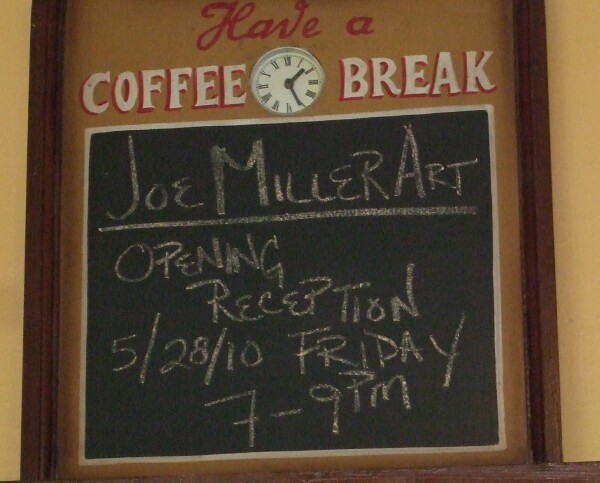 Have a
COFFEE BREAK
JOE MILLER ART
OPENING
RECEPTION
5/28/10 FRIDAY
7-9PM